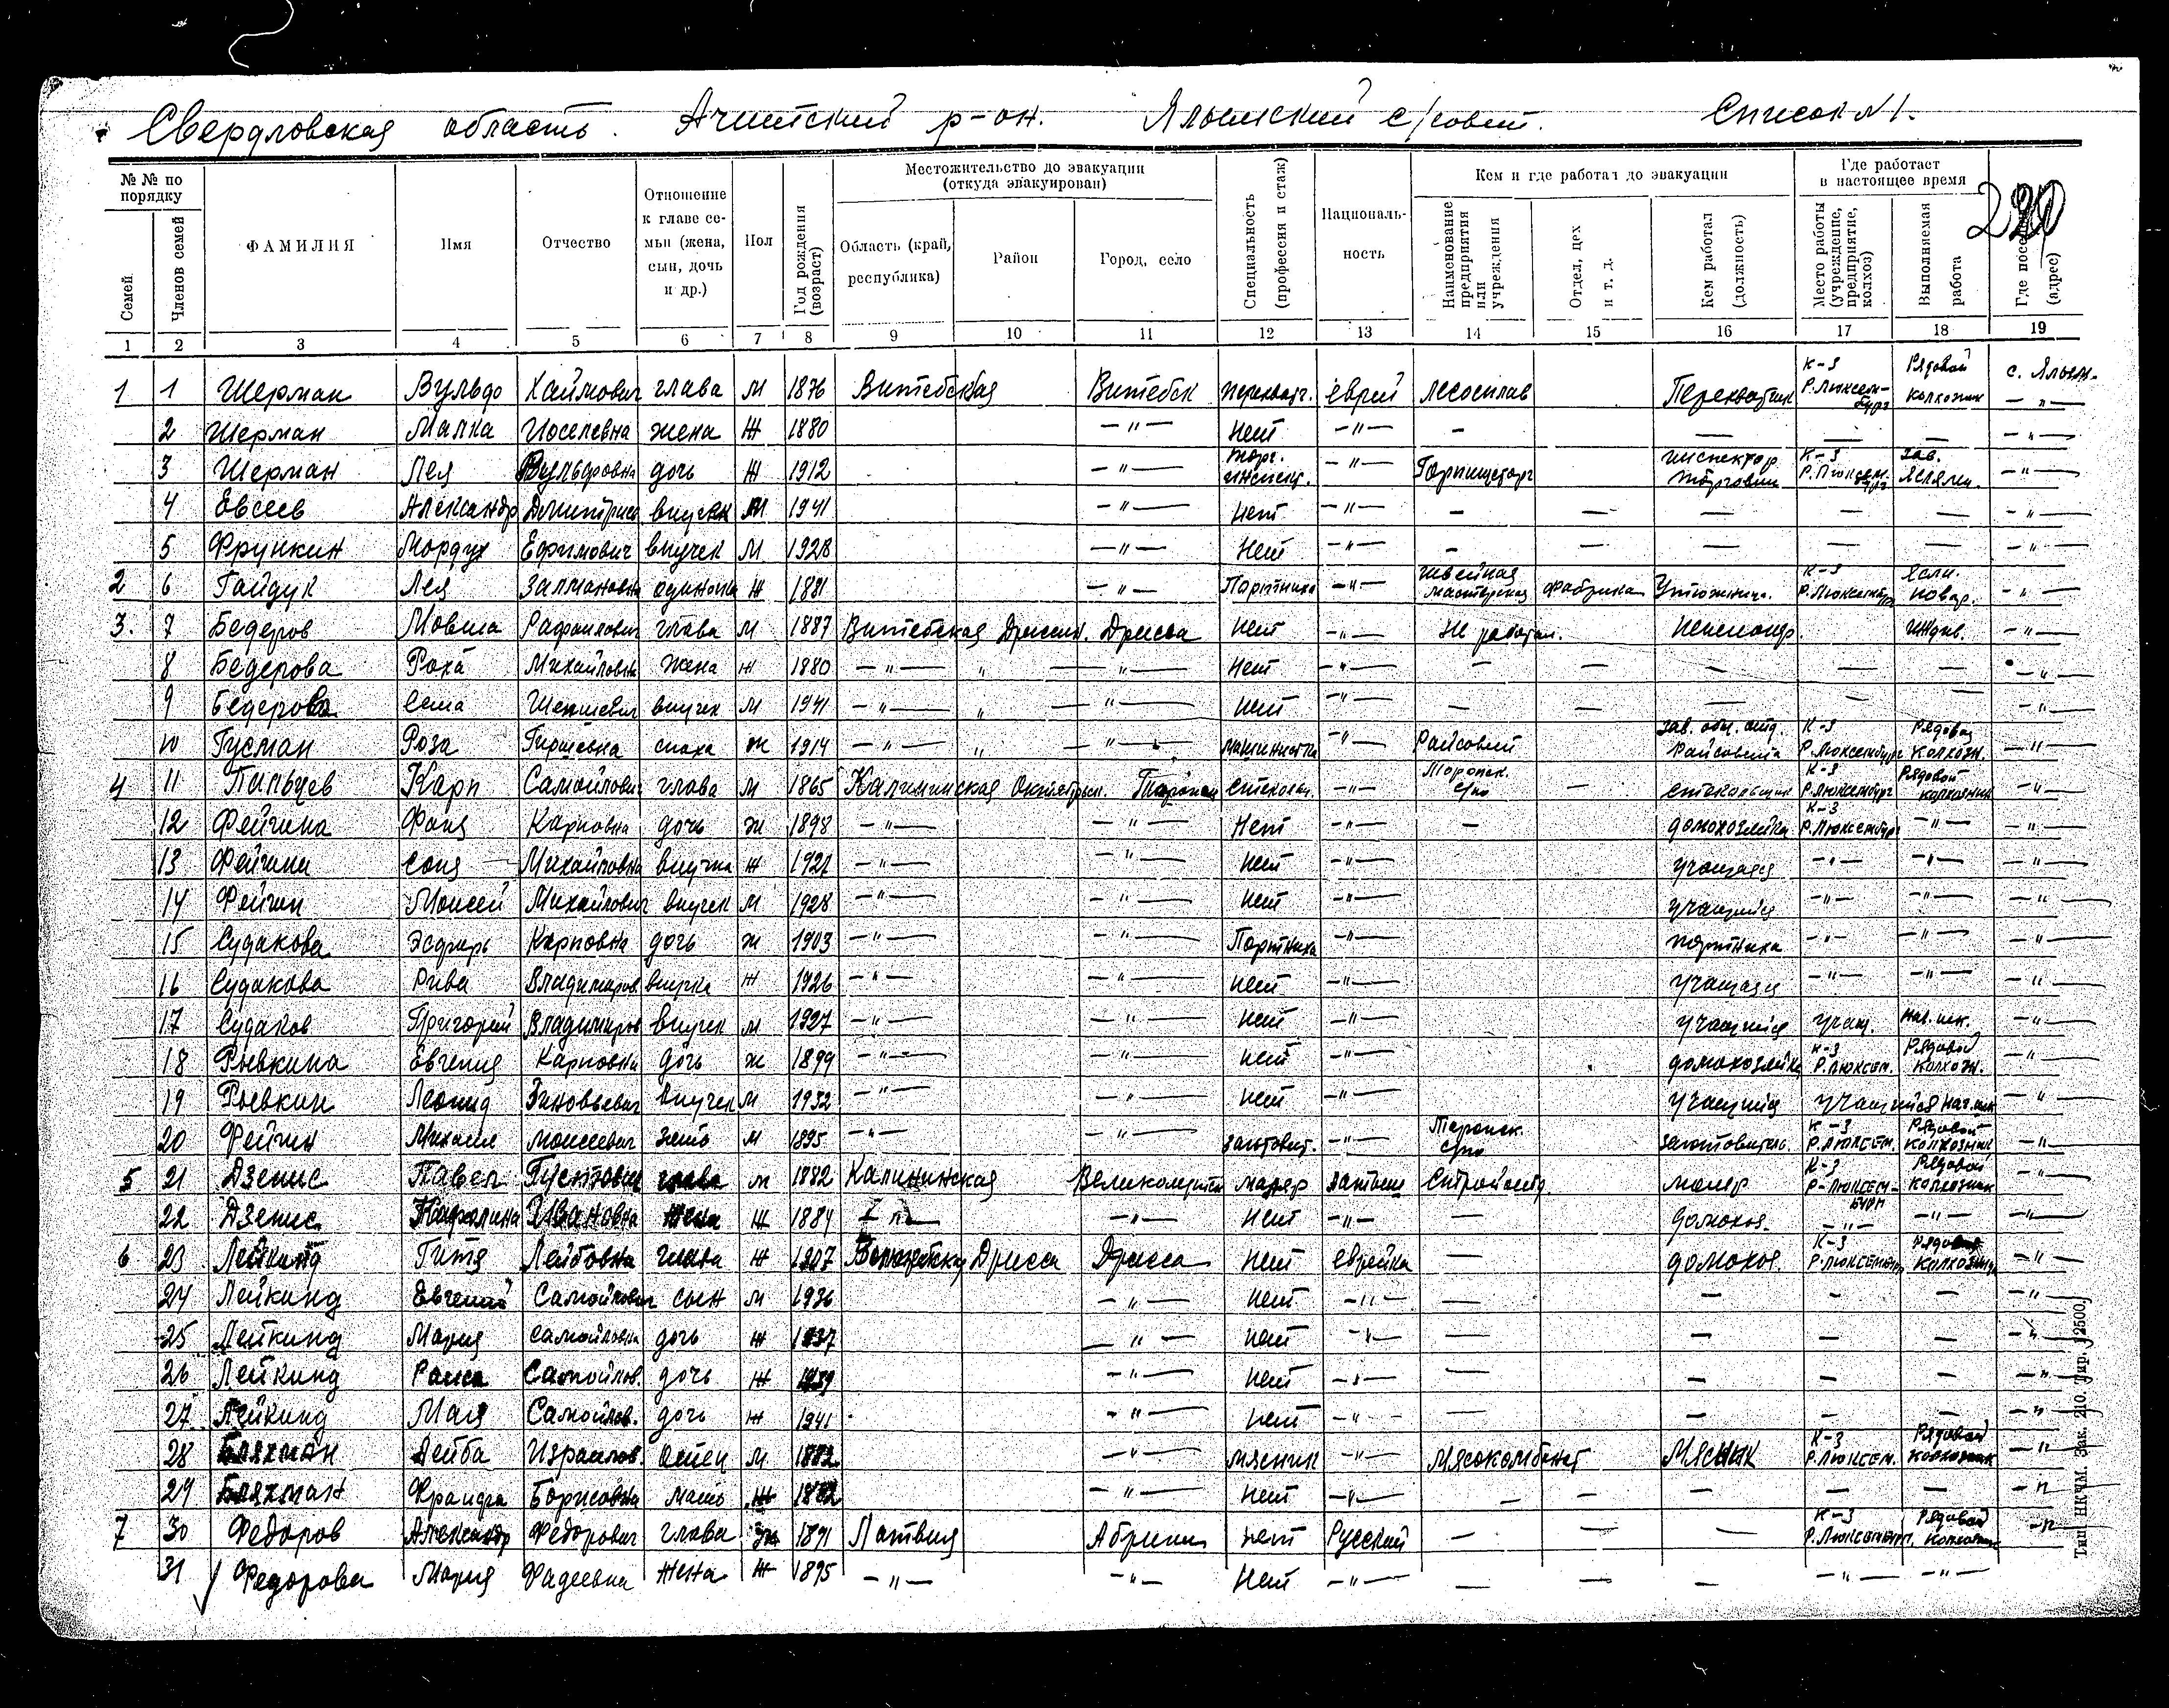 Свердловская область. Ачитский р-он. Ялымский с/совет. Список №1.
№№ по порядку
Семей
Членов семей
ФАМИЛИЯ
Имя
Отчество
Отношение к главе семьи (жена, сын, дочь и др.)
Пол
Год рождения (возраст)
Местожительство до эвакуации (откуда эвакуирован)
Область (край, республика)
Район
Город, село
Специальность (профессия и стаж)
Националь-ность
Кем и где работал до эвакуации
Наименование предприятия или учреждения
Отдел, цех и т. д.
Кем работал (должность)
Где работает в настоящее время
Место работы (учреждение, предприятие, колхоз)
Выполняемая работа
(адрес)
1 2 3 4 5 6 7 8 9 10 11 12 13 14 15 16 17 18 19
1 1 Шерман Вульфо Хаймович глава М 1876 Витебская Витебск еврей лесосплав К-З Р.Люксембург Рядовой колхозник с. Ялым.
2 Шерман Малка Иоселевна жена Ж 1880 -"- нет -"- - — — — -"-
3 Шерман Лея Вульфовна дочь Ж 1912 -"- торг. инспект. -"- Горпищеторг инспектор торговли К-З Р.Люксембург зав. яслями. -"-
4 Евсеев Александр внучек М 1941 -"- нет -"- - — — — — -"-
5 Фрункин Мордух Ефимович внучек М 1928 -"- Нет -"- - — — — — -"-
2 6 Гайдук Лея Залмановна одиночка Ж 1881 -"- Портниха -"- Швейная мастерская фабрика Утюжница. К-З Р.Люксембург Ясли. повар. -"-
3. 7 Бедеров Мовша Рафаилович глава М 1887 Витебская Дриссен. Дрисса нет -"- Не работал. пенсионер. Ижд. -"-
8 Бедерова Роха Михайловна жена Ж 1880 -"- " -"- нет -"- - — — — — -"-
9 Бедерова Сема внучек М 1941 -"- " -"- нет -"- - — — — — -"-
10 Гусман Роза Гиршевна сноха Ж 1914 -"- " -"- машинистка -"- Райсовет зав. общ. отд. Райсовета К-З Р.Люксембург Рядовая колхозн. -"-
4 11 Пальцев Карп Самойлович глава М 1865 Калининская Октябрьск. Торопец стекольщ. -"- Торопец. с/по — стекольщик К-З Р.Люксембург Рядовой колхозник -"-
12 Фейгина Фаня Карповна дочь Ж 1898 -"- -"- Нет -"- - домохозяйка К-З Р.Люксембург -"- -"-
13 Фейгина Соня Михайловна внучка Ж 1921 -"- -"- нет -"- учащаяся -"- -"- -"-
14 Фейгин Моисей Михайлович внучек М 1928 -"- -"- нет -"- учащийся -"- -"- -"-
15 Судакова Эсфирь Карповна дочь Ж 1903 -"- -"- Портниха -"- портниха -"- -"- -"-
16 Судакова Рива Владимиров. внучка Ж 1926 -"- -"- нет -"- учащаяся -"- -"- -"-
17 Судаков Григорий Владимиров внучек М 1927 -"- -"- нет -"- учащийся учащ. нач. шк. -"-
18 Рывкина Евгения Карповна дочь Ж 1899 -"- -"- нет -"- домохозяйка К-З Р.Люксем. Рядовой колхозн. -"-
19 Рывкин Леонид Зиновьевич внучек М 1932 -"- -"- нет -"- учащийся учащийся нач. шк. -"-
20 Фейгин Михаил Моисеевич зять М 1895 -"- -"- заготовит. -"- Торопец. с/по заготовитель. К-З Р.Люксем. Рядовой колхозник -"-
5 21 Дзенис Павел Густович глава М 1882 Калининская маляр латыш маляр К-З Р-Люксембург Рядовой колхозник -"-
22 Дзенис Каролина Ивановна жена Ж 1884 -"- -"- нет -"- — домохоз. -"- -"- -"-
6 23 Лейкинд Гитя Лейбовна глава Ж 1907 Витебская Дрисса Дрисса нет еврейка — домохоз. К-З Р.Люксембург Рядовая колхозница -"-
24 Лейкинд Евгений Самойлович сын М 1936 -"- нет -"- — — - — -"-
25 Лейкинд Мария Самойловна дочь Ж 1937 -"- нет -"- — — — — -"-
26 Лейкинд Раиса Самойлов. дочь Ж 1939 -"- нет -"- — — — — -"-
27 Лейкинд Мая Самойлов. дочь Ж 1941 -"- нет -"- — — — — -"-
28 Бляхман Лейба Израилов. отец М 1882 -"- мясник -"- Мясокомбинат мясник К-З Р.Люксем. Рядовой колхозник -"-
29 Бляхман Борисовна мать Ж 1882 -"- нет -"- — — — — — -"-
7 30 Федоров Александр Федорович глава 1891 Латвия Абрини нет Русский — — — К-З Р.Люксембург. Рядовой колхозник -"-
31 Федорова Мария Фадеевна жена Ж 1895 -"- -"- Нет -"- — — — -"- -"-
Тип. НКЧМ. Зак. 210. Тир. 12500.